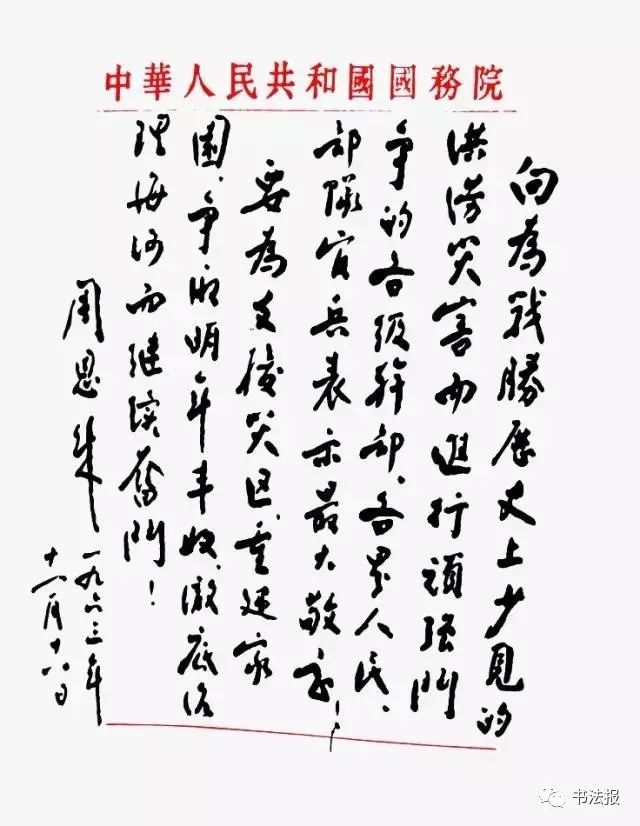 中華人民共和國國務院
向為戰勝歷史上少見的
洪澇災害而進行頑强鬥
争的各级幹部、各界人民、
部隊官兵表示最大敬意!
要為支援災区、重建家
園、争取明年丰收、澈底治
理海河而继续奮鬥!
周恩来
一九六三年
十一月十八日
书法报